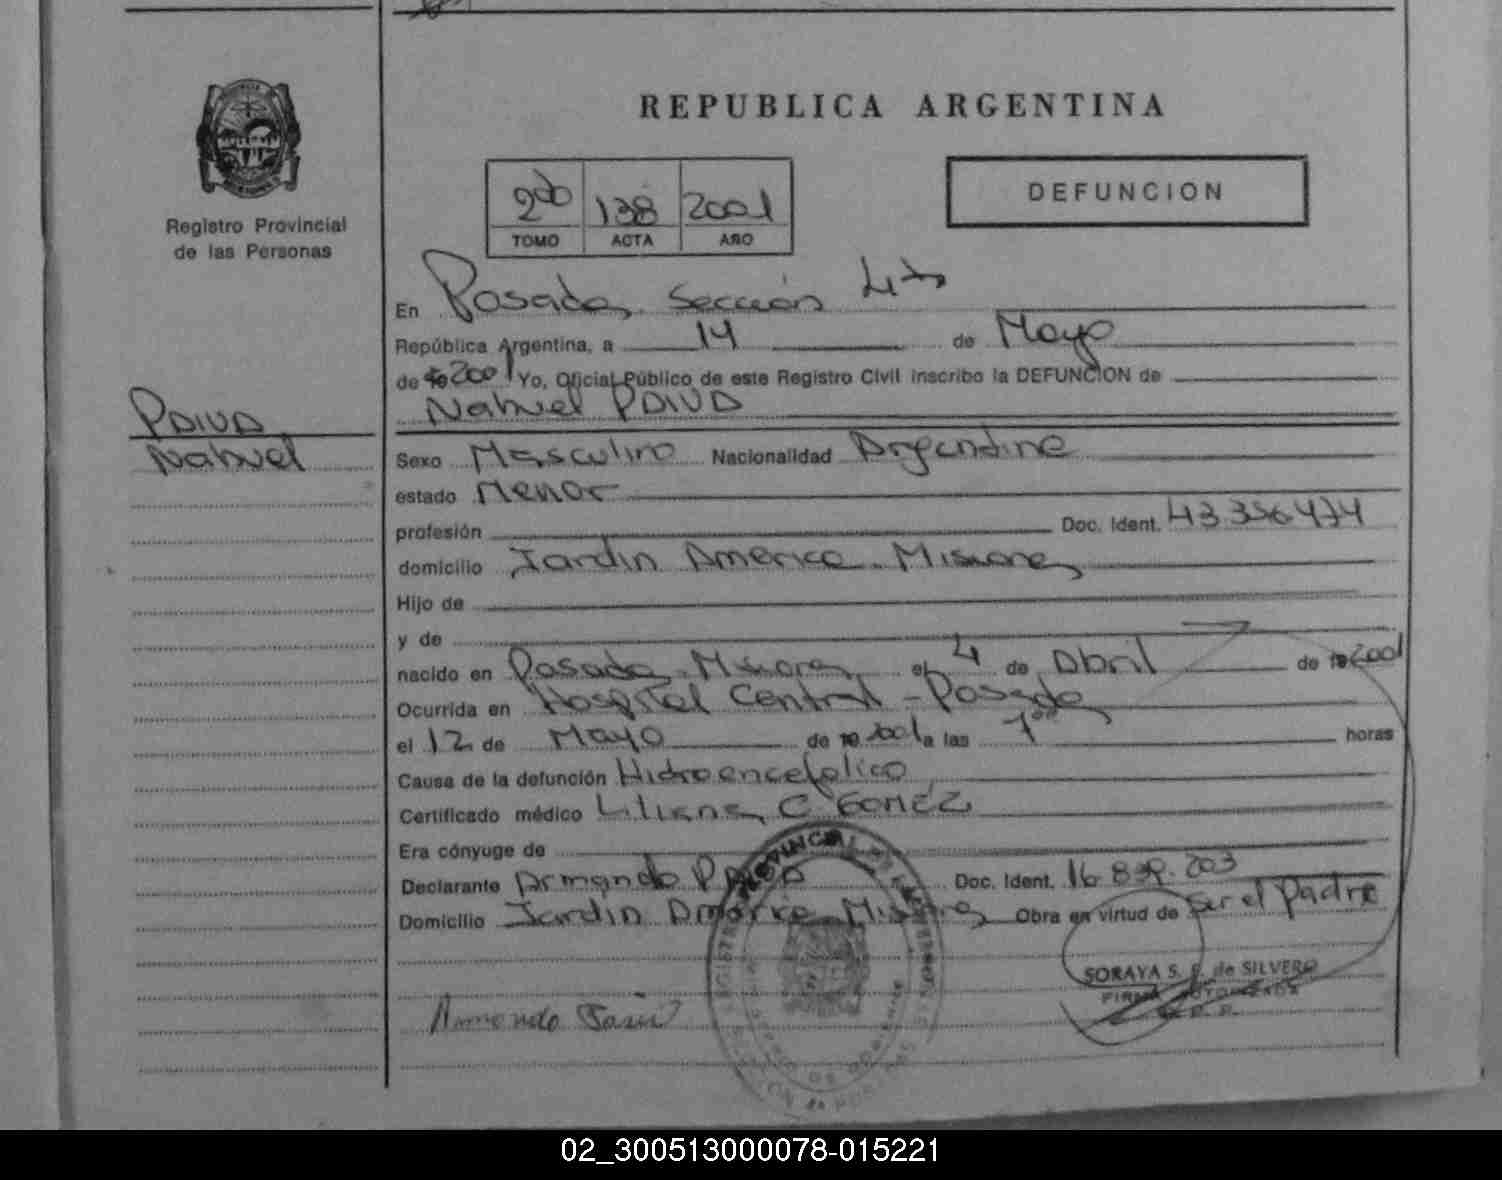 REPUBLICA ARGENTINA
Registro Provincial
de las Personas
2do 138 2001
TOMO ACTA AÑO
DEFUNCION
En Posadas Sección 4ta
República Argentina, a 14 de Mayo
de 2001 Yo, Oficial Público de este Registro Civil inscribo la DEFUNCION de
Nahuel PAIVA
PAIVA
Nahuel
Sexo Masculino Nacionalidad Argentina
estado Menor
profesión Doc. Ident. 43.356474
domicilio Jardin America - Misiones
Hijo de
y de
nacido en Posadas - Misiones el 4 de Abril de 2001
Ocurrida en Hospital Central - Posadas
el 12 de Mayo de 2001 a las 7 horas
Causa de la defunción Hidroencefalico
Certificado médico Liliana C Gomez
Era cónyuge de
Declarante Armando PAIVA Doc. Ident. 16.839.203
Domicilio Jardin America - Misiones Obra en virtud de ser el padre
SORAYA S. de SILVERO
FIRMA AUTORIZADA
R.P.P.
Armando
REGISTRO PROVINCIAL DE LAS PERSONAS
02_300513000078-015221